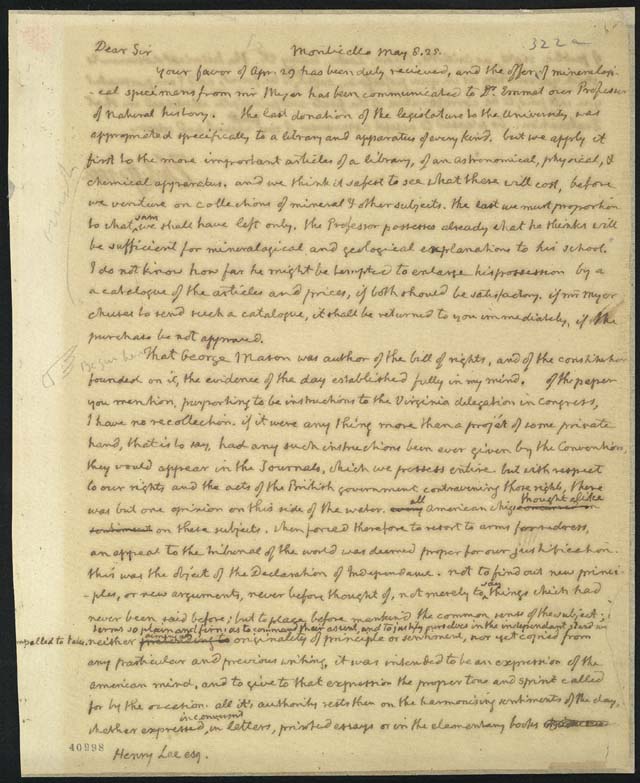 322a
Dear Sir Monticello May 8. 25.
Your favor of Apr. 29 has been duly recieved, and the offer of mineralogi-
-cal specimens from mr Meyer has been communicated to Dr. Emmet our Professor
of Natural history. The last donation of the legislature to the University was
appropriated specifically to a library and apparatus of every kind. but we apply it
first to the more important articles of a library, of an astronomical, physical, &
chemical apparatus. and we think it safest to see what these will cost, before
we venture on collections of mineral & other subjects. the last we must proportion
to what sum we shall have left only. the Professor possesses already what he thinks will
be sufficient for mineralogical and geological explanations to his school.
I do not know how far he might be tempted to enlarge his possession by a
a catalogue of the articles and prices, if both should be satisfactory. if mr Myer
chuses to send such a catalogue, it shall be returned to you immediately, if the
purchase be not approved.
That George Mason was author of the bill of rights, and of the constitution
founded on it, the evidence of the day established fully in my mind. Of the paper
you mention, purporting to be instructions to the Virginia delegation in Congress,
I have no recollection. if it were any thing more than a projet of some private
hand, that is to say, had any such instructions been ever given by the Convention,
they would appear in the Journals, which we possess entire. but with respect
to our rights and the acts of the British government contravening those rights, there
was but one opinion on this side of the water. all American whigs thought alike
on these subjects. when forced therefore to resort to arms for redress,
an appeal to the tribunal of the world was deemed proper for our justification.
this was the object of the Declaration of Independance. not to find out new princi-
-ples, or new arguments, never before thought of, not merely to say things which had
never been said before; but to place before mankind the common sense of the subject;
terms so plain and firm, as to command their assent, and to justify ourselves in the independant stand we
compelled to take. neither aiming at originality of principle or sentiment, nor yet copied from
any particular and previous writing, it was intended to be an expression of the
american mind, and to give to that expression the proper tone and spirit called
for by the occasion. all it's authority rests then on the harmonising sentiments of the day,
whether expressed, in conversns in letters, printed essays or in the elementary books
40998
Henry Lee esq.